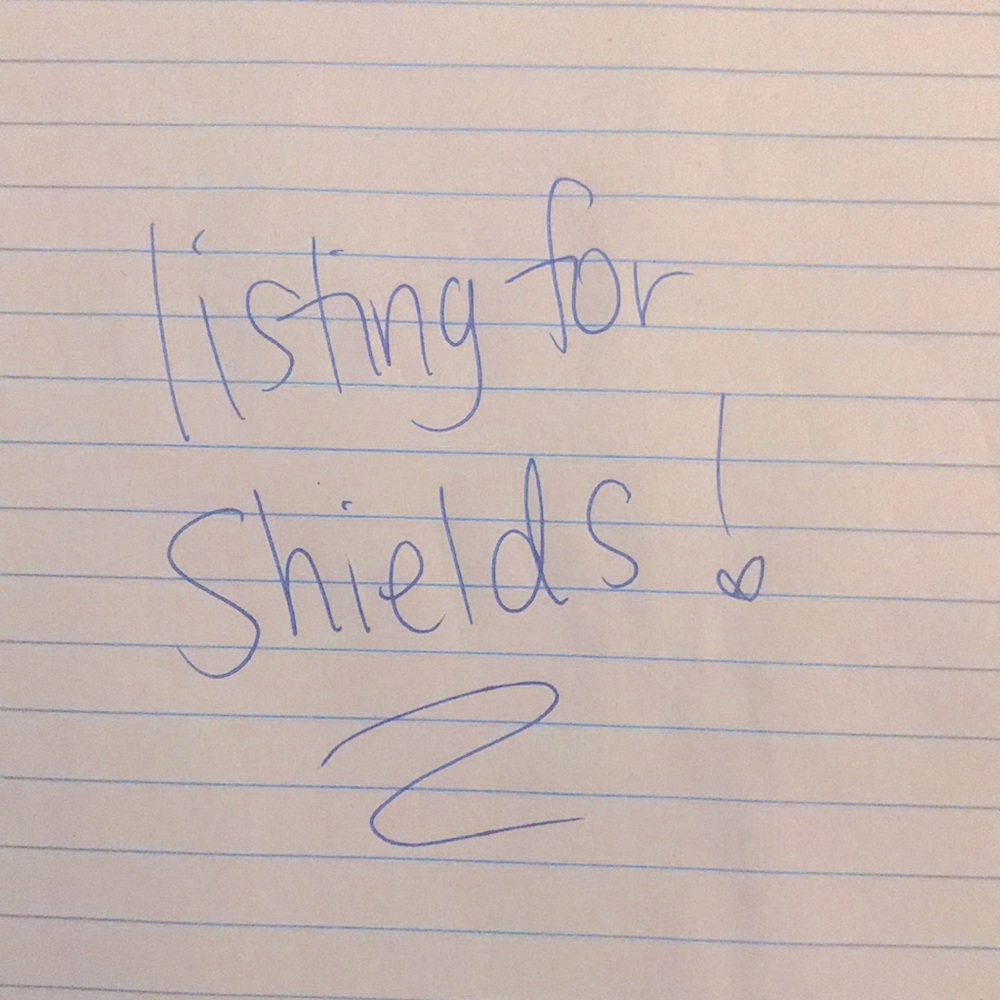 listing for
shields!